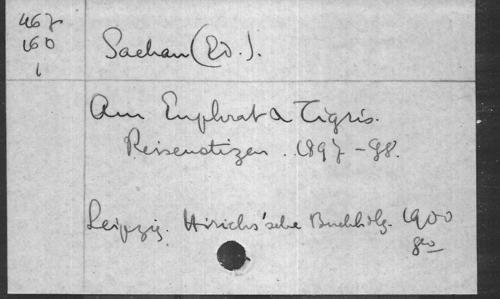 467
160
1
Sachau (Ed.).
Am Euphrat & Tigris.
Reisenotizen. 1897-98.
Leipzig. Hinrichs'sche Buchhdlg. 1900
8vo